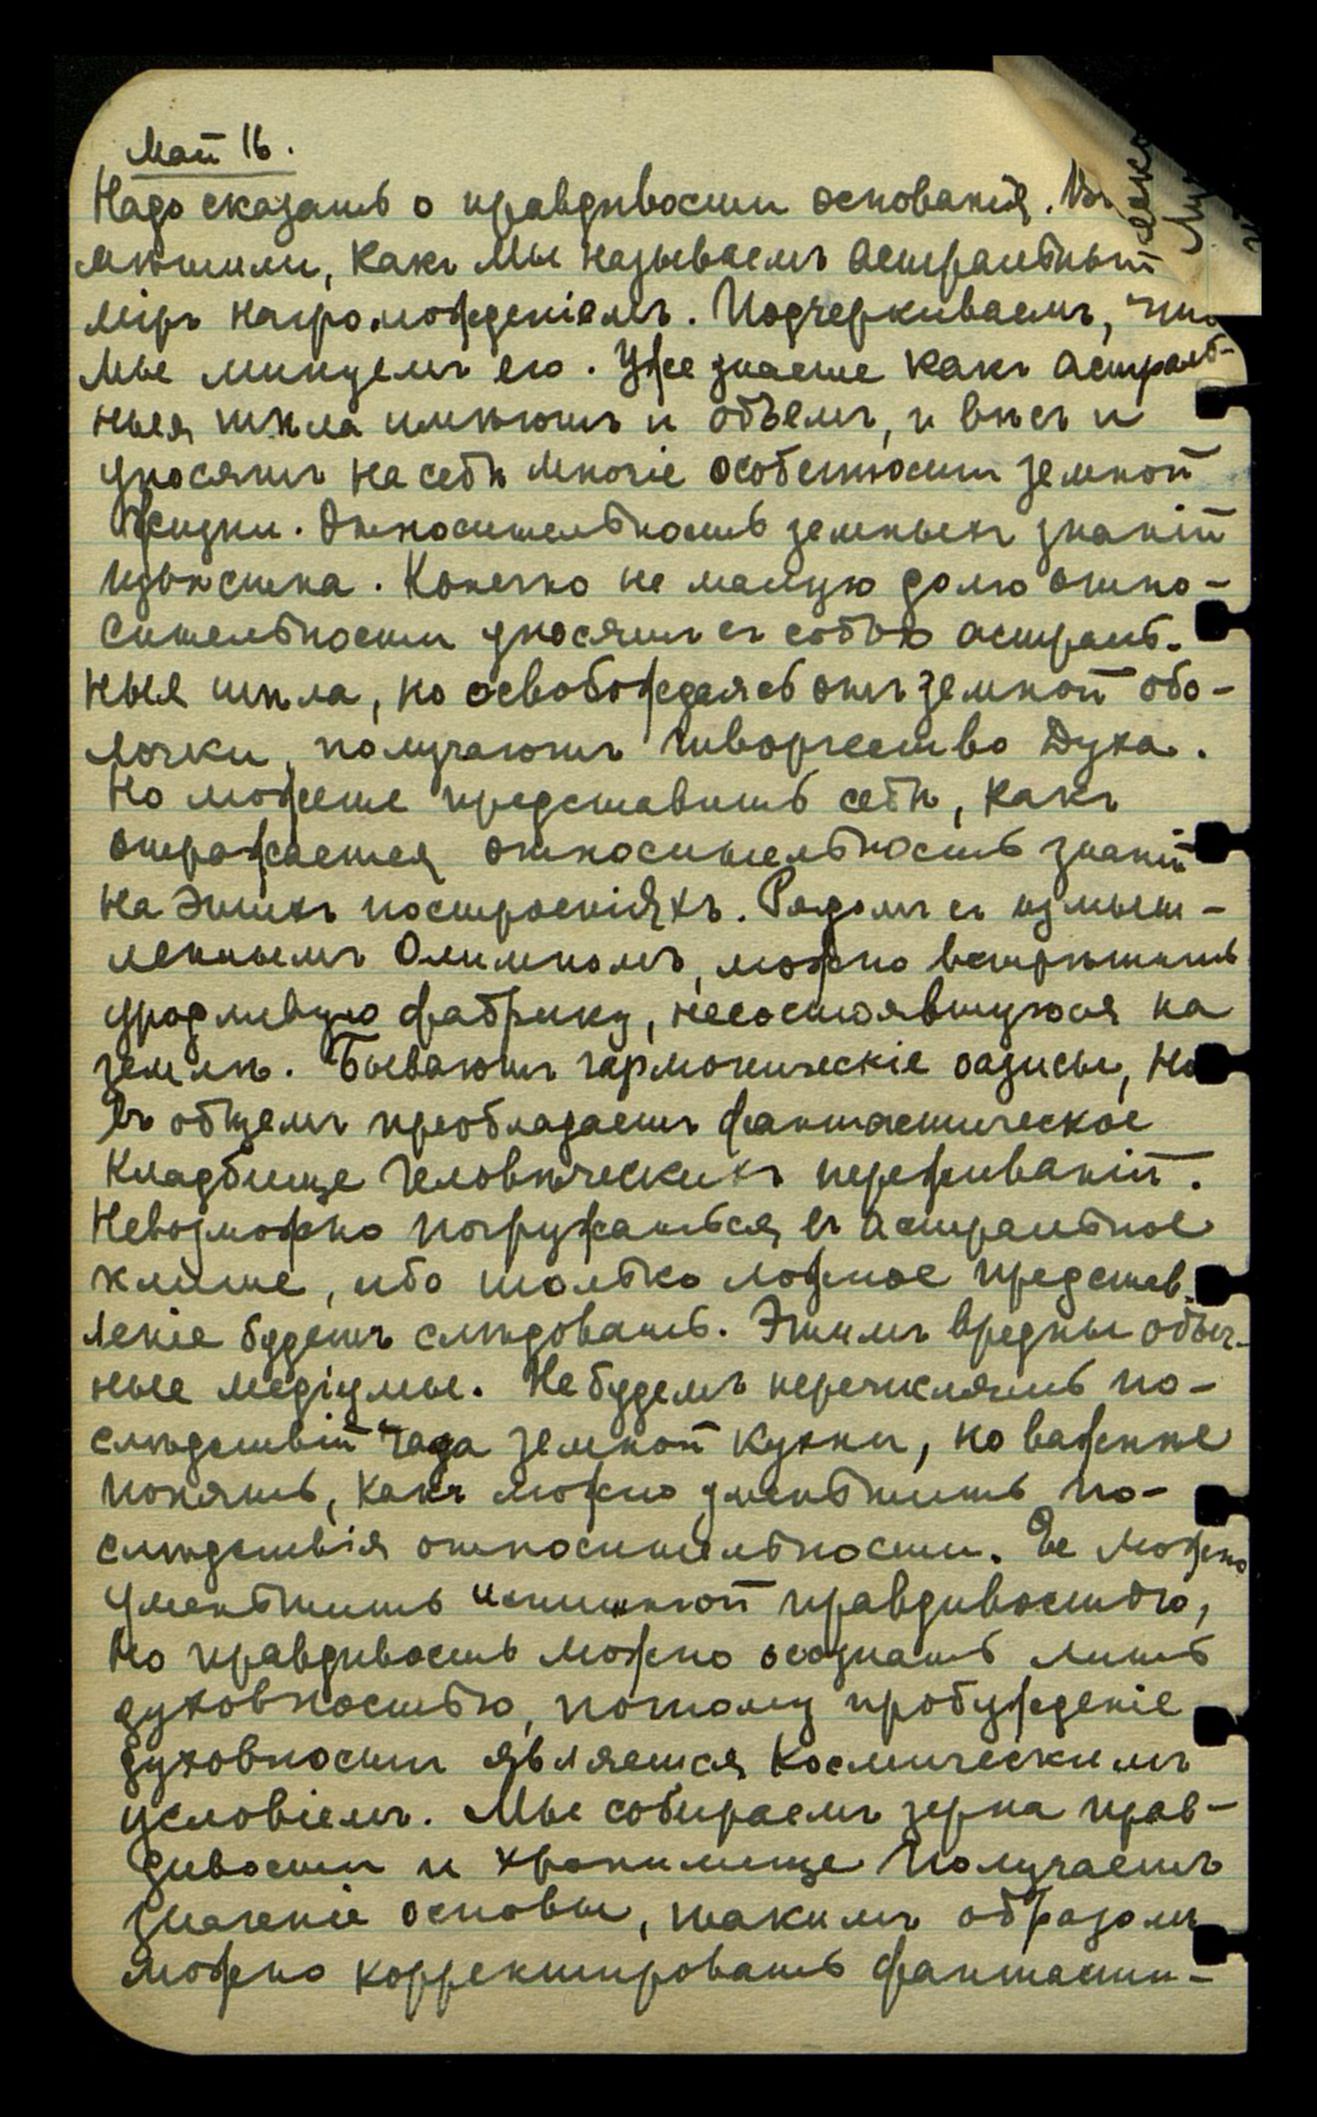 Май 16.
Надо сказать о правдивости основанія.
мѣтили, какъ Мы называемъ астральный
міръ нагроможденіемъ. Подчеркиваемъ, что
Мы минуемъ его. Уже знаете какъ астраль-
ныя тѣла имѣютъ и объемъ, и вѣсъ и
уносятъ на себѣ многіе особенности земной
жизни. Относительность земныхъ знаній
извѣстна. Конечно не малую долю отно-
сительности уносятъ съ собою астраль-
ныя тѣла, но освобождаясь отъ земной обо-
лочки, получаютъ творчество духа.
Но можете представить себѣ, какъ
отражается относительность знаній
на этихъ построеніяхъ. Рядомъ съ измыш-
леннымъ Олимпомъ, можно встрѣтить
уродливую фабрику, несостоявшуюся на
землѣ. Бываютъ гармоническіе оазисы, но
въ общемъ преобладаетъ фантастическое
кладбище человѣческихъ переживаній.
Невозможно погружаться въ астральное
клише, ибо только ложное представ-
леніе будетъ слѣдовать. Этимъ вредны обыч-
ные медіумы. Не будемъ перечислять по-
слѣдствій чада земной кухни, но важнѣе
понять, какъ можно уменьшить по-
слѣдствія относительности. Ее можно
уменьшить истинной правдивостью,
но правдивость можно осознать лишь
духовностью, потому пробужденіе
духовности является космическимъ
условіемъ. Мы собираемъ зерна прав-
дивости и хранилище получаетъ
значеніе основы, такимъ образомъ
можно корректировать фантасти-